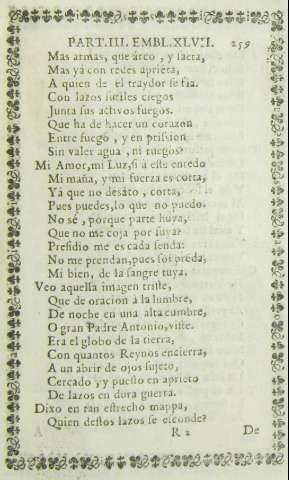 PART.III. EMBL.XLVII. 259
Mas armas, que arco, y saeta,
Mas yá con redes aprieta,
A quien de el traydor se fia.
Con lazos sutiles ciegos
Junta sus activos fuegos.
Que ha de hacer un corazon
Entre fuego, y en prission
Sin valer agua, ni ruegos?
Mi Amor, mi Luz, si à este enredo
Mi maña, y mi fuerza es corta,
Yá que no desáto, corta,
Pues puedes, lo que no puedo.
No sé, porque parte huya,
Que no me coja por suya?
Presidio me es cada senda:
No me prendan, pues soi préda,
Mi bien, de la sangre tuya.
Veo aquessa imagen triste,
Que de oracion à la lumbre,
De noche en una alta cumbre,
O gran Padre Antonio, viste.
Era el globo de la tierra,
Con quantos Reynos encierra,
A un abrir de ojos sujeto,
Cercado, y puesto en aprieto
De lazos en dura guerra.
Dixo en tan estrecho mappa,
Quien destos lazos se esconde?
R 2 De